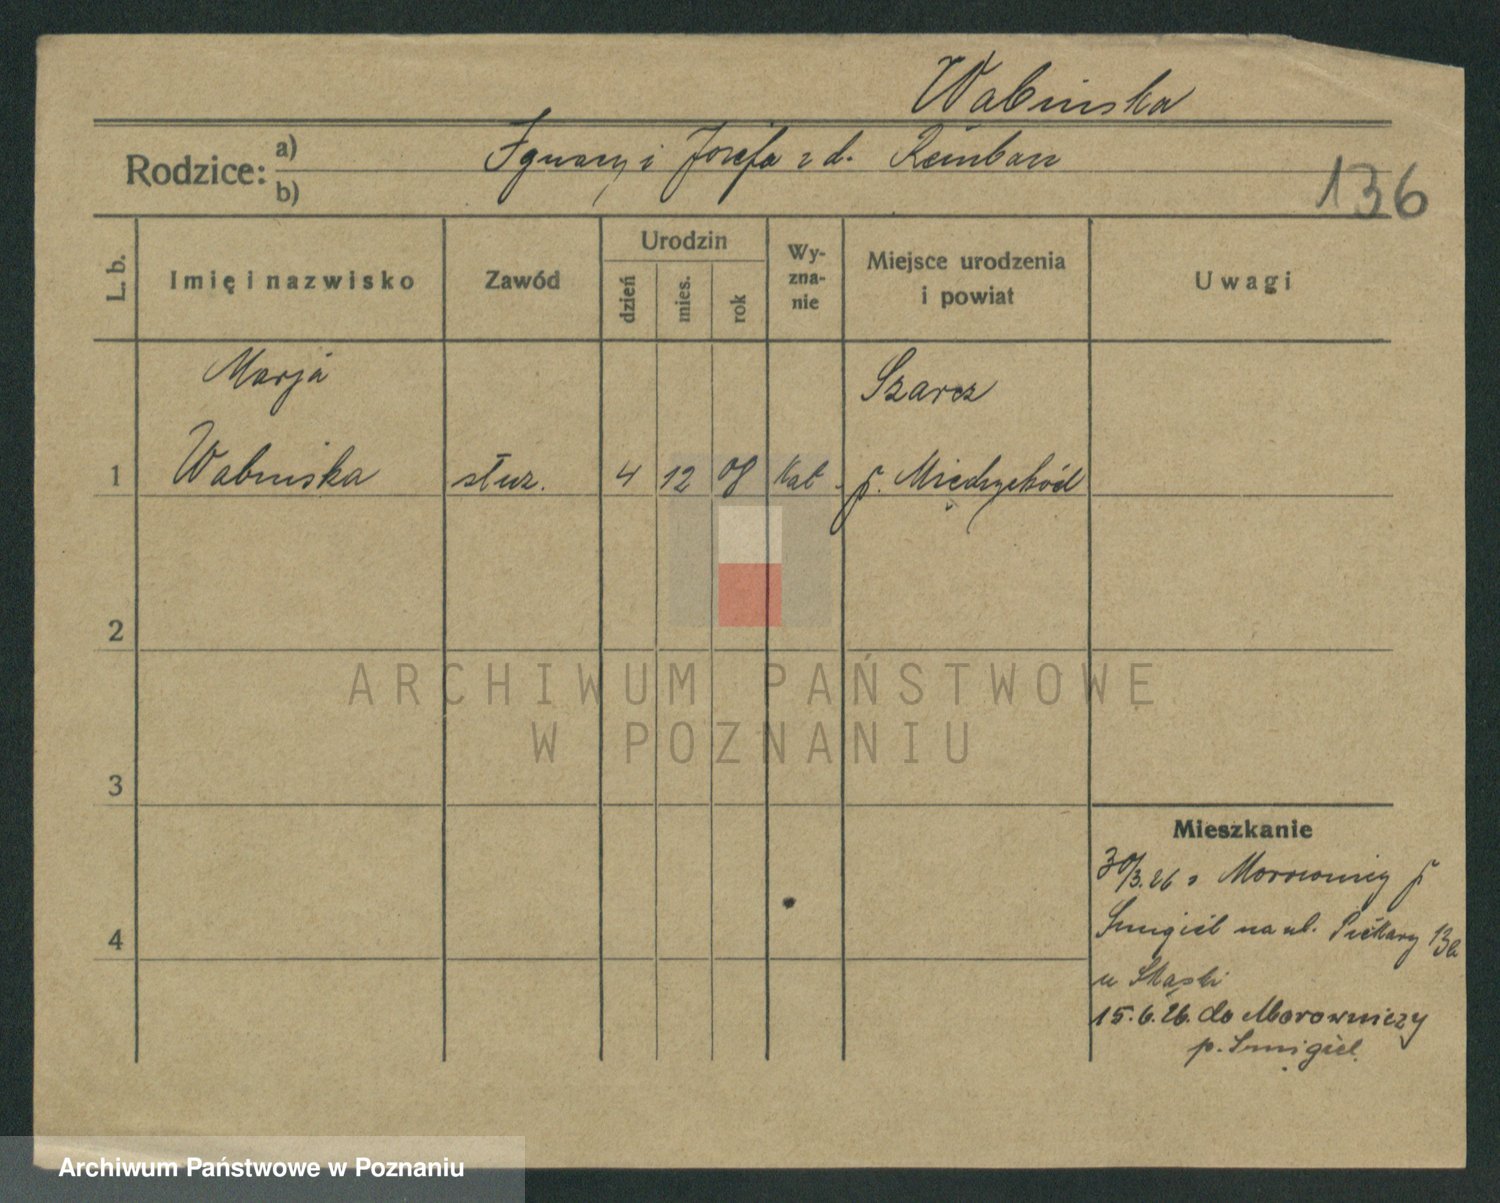 Wabińska
Rodzice:
a)
b)
Ignacy i Józefa z d.
136
L. b.
Imię i nazwisko
Zawód
Urodzin
dzień
mies.
rok
Wy-
zna-
nie
Miejsce urodzenia
i powiat
Uwagi
Marja
Szarcz
1
Wabińska
służ.
4
12
08
Kat.
p. Międzychód
2
ARCHIWUM PAŃSTWOWE
W POZNANIU
3
Mieszkanie
30/3.26 z Morownicy p
4
Śmigiel na ul. Piekary 13b
u
15.6.26. do Morowniczy
p. Śmigiel.
Archiwum Państwowe w Poznaniu